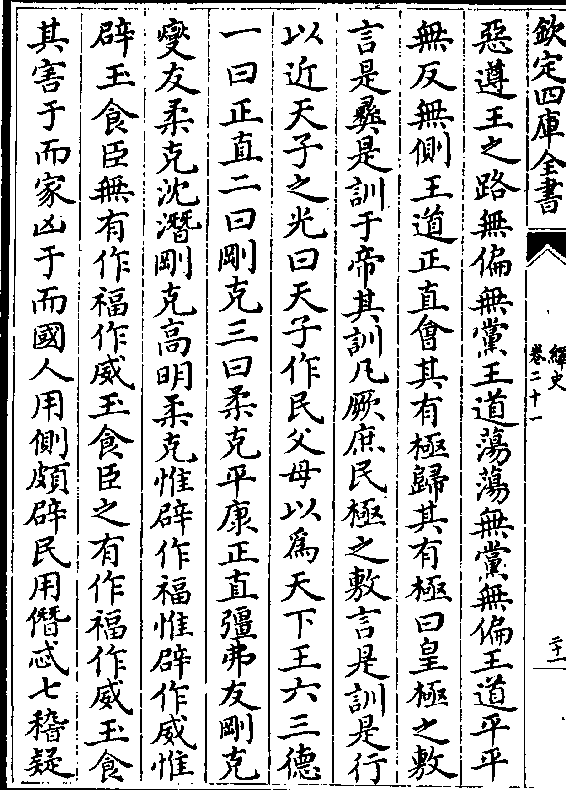 欽定四庫全書
繹史
卷二十一
二十一
惡遵王之路無偏無黨王道蕩蕩無黨無偏王道平平
無反無側王道正直會其有極歸其有極曰皇極之敷
言是彛是訓于帝其訓凡厥庶民極之敷言是訓是行
以近天子之光曰天子作民父母以為天下王六三德
一曰正直二曰剛克三曰柔克平康正直彊弗友剛克
燮友柔克沈潛剛克高明柔克惟辟作福惟辟作威惟
辟玉食臣無有作福作威玉食臣之有作福作威玉食
其害于而家凶于而國人用側頗辟民用僭忒七稽疑